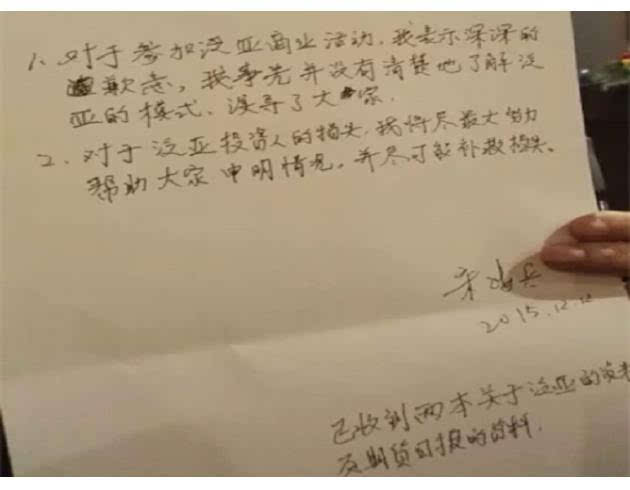 1、对于参加泛亚商业活动，我表示深深的
歉意，我事先并没有清楚地了解泛
亚的模式、误导了大家．
2、对于泛亚投资人的损失，我将尽最大努力
帮助大家申明情况，并尽可能补救损失。
宋鸿兵
2015.12.12
已收到两本关于泛亚的资料
及期货日报的资料．